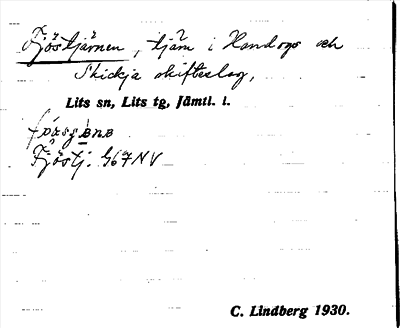 Fjöstjärnen, tjärn i Handogs och
Skickja skifteslag,
Lits sn, Lits tg, Jämtl. l.
Fjöstj. 967NV
C. Lindberg 1930.